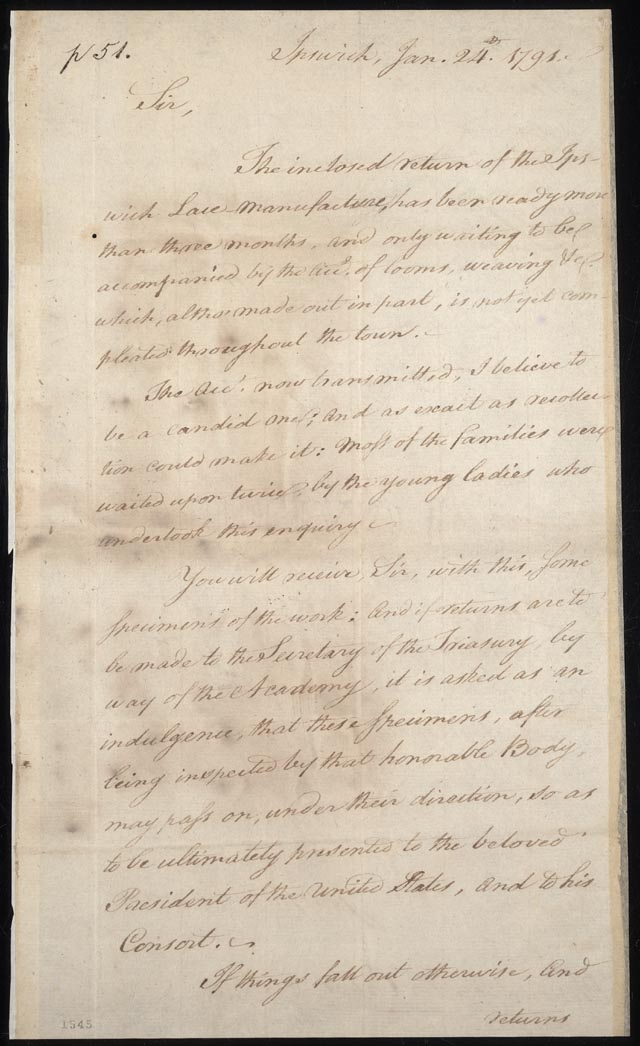 p 51.
Ipswich, Jan. 24th. 1791.
Sir,
The inclosed return of the Ips-
wich Lace manufacture, has been ready more
than three months, and only waiting to be
accompanied by the acct. of looms, weaving &c.
which, altho made out in part, is not yet com-
pleated throughout the town.
The acct. now transmitted, I believe to
be a candid one; and as exact as recollec-
tion could make it: Most of the families were
waited upon twice, by the young ladies who
undertook this enquiry
You will receive, Sir, with this, some
specimens of the work: And if returns are to
be made to the Secretary of the Treasury, by
way of the Academy, it is asked as an
indulgence, that these specimens, after
being inspected by that honorable Body,
may pass on, under their direction, so as
to be ultimately presented to the beloved
President of the United States, and to his
Consort.
If things fall out otherwise, and
returns
1545